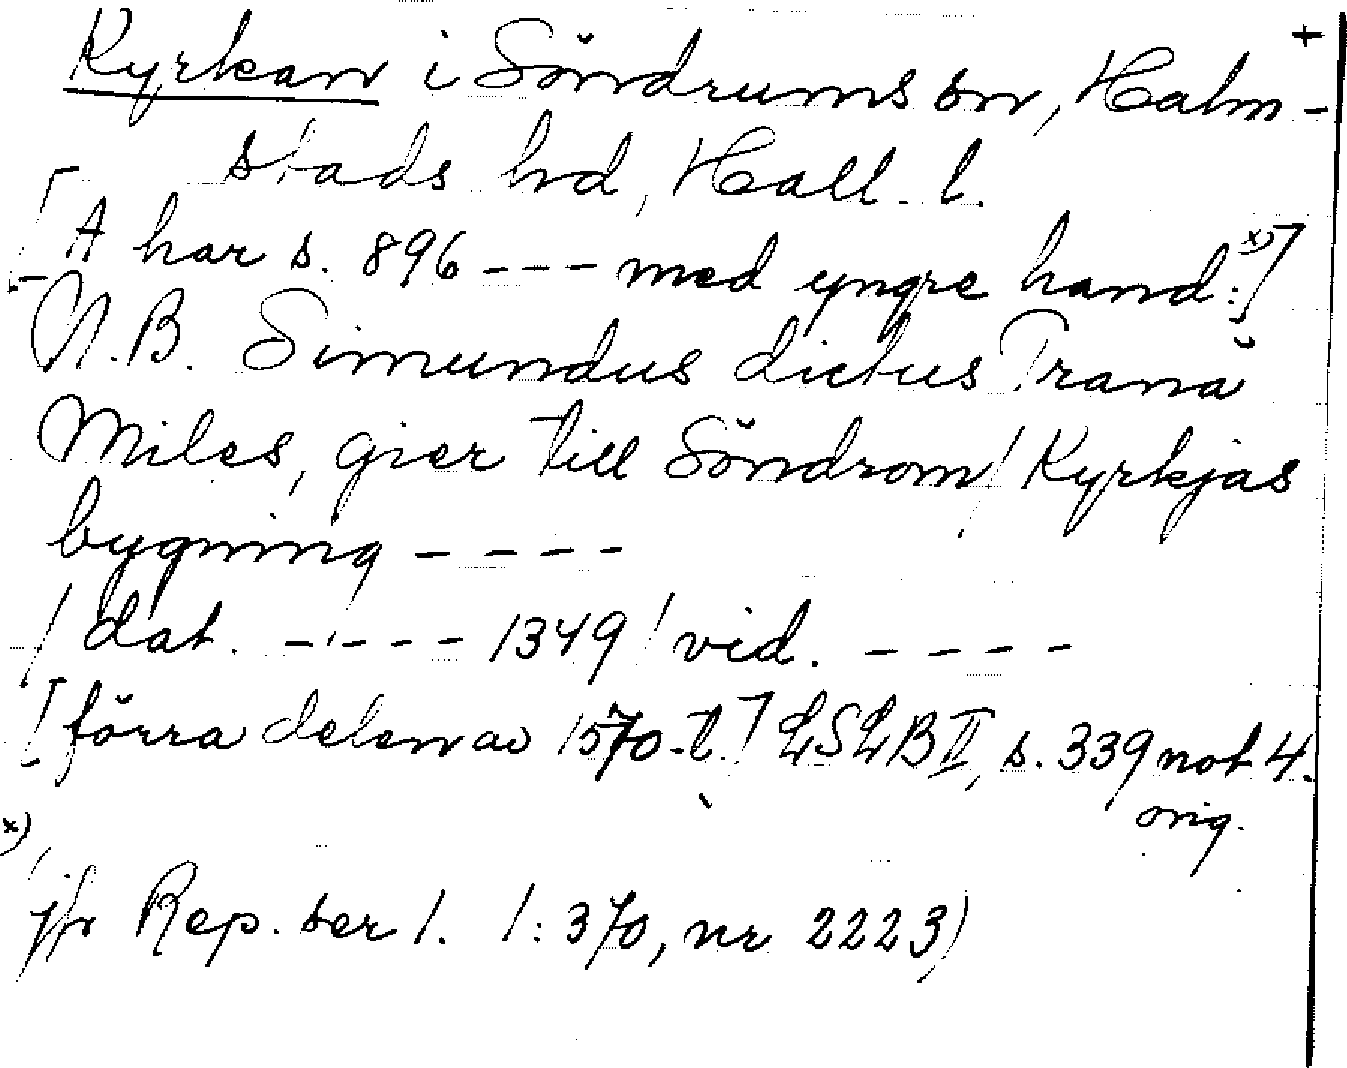 +
Kyrkan i Söndrums sn, Halm-
stads hd, Hall. l.
[A har s. 896 --- med yngre hand: x)]
N.B. Simundus dictus Trană
Miles, gier till Söndrom / Kyrkjas
bygning ----
/ dat. ---- 1349 / vid. ----
[förra delen av 1570-t.] LSLB II, s. 339 not 4.
orig.
x)
jfr Rep. ser 1. 1: 370, nr 2223)